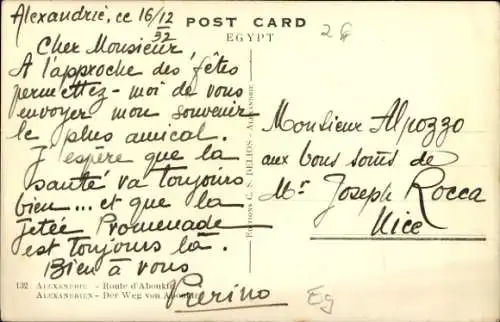 Alexandrie, ce 16/12
32
POST CARD
EGYPT
Cher Monsieur,
A l'approche des fêtes
permettez-moi de vous
envoyer mon souvenir
le plus amical.
J'espère que la
santé va toujours
bien... et que la
Jetée Promenade
est toujours là.
Bien à vous
Pierino
Monsieur Alpozzo
aux bons soins de
Mr Joseph Rocca
Nice
EDITIONS C. S. DELIOS - ALEXANDRIE
132 ALEXANDRIE - Route d'Aboukir
ALEXANDRIEN - Der Weg von Aboukir
Eg